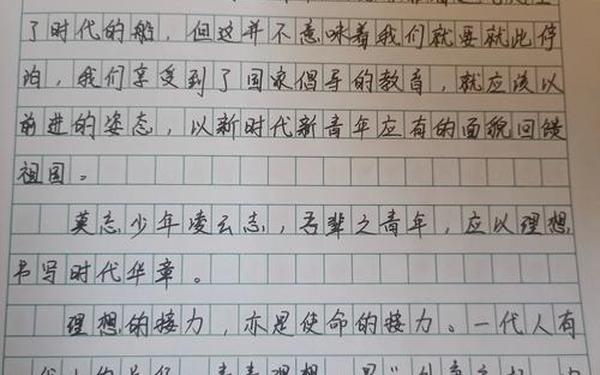 了时代的船，但这并不意味着我们就要就此停
泊，我们享受到了国家倡导的教育，就应该以
前进的姿态，以新时代新青年应有的面貌回馈
祖国。
莫忘少年凌云志，吾辈之青年，应以理想
书写时代华章。
理想的接力，亦是使命的接力。一代人有